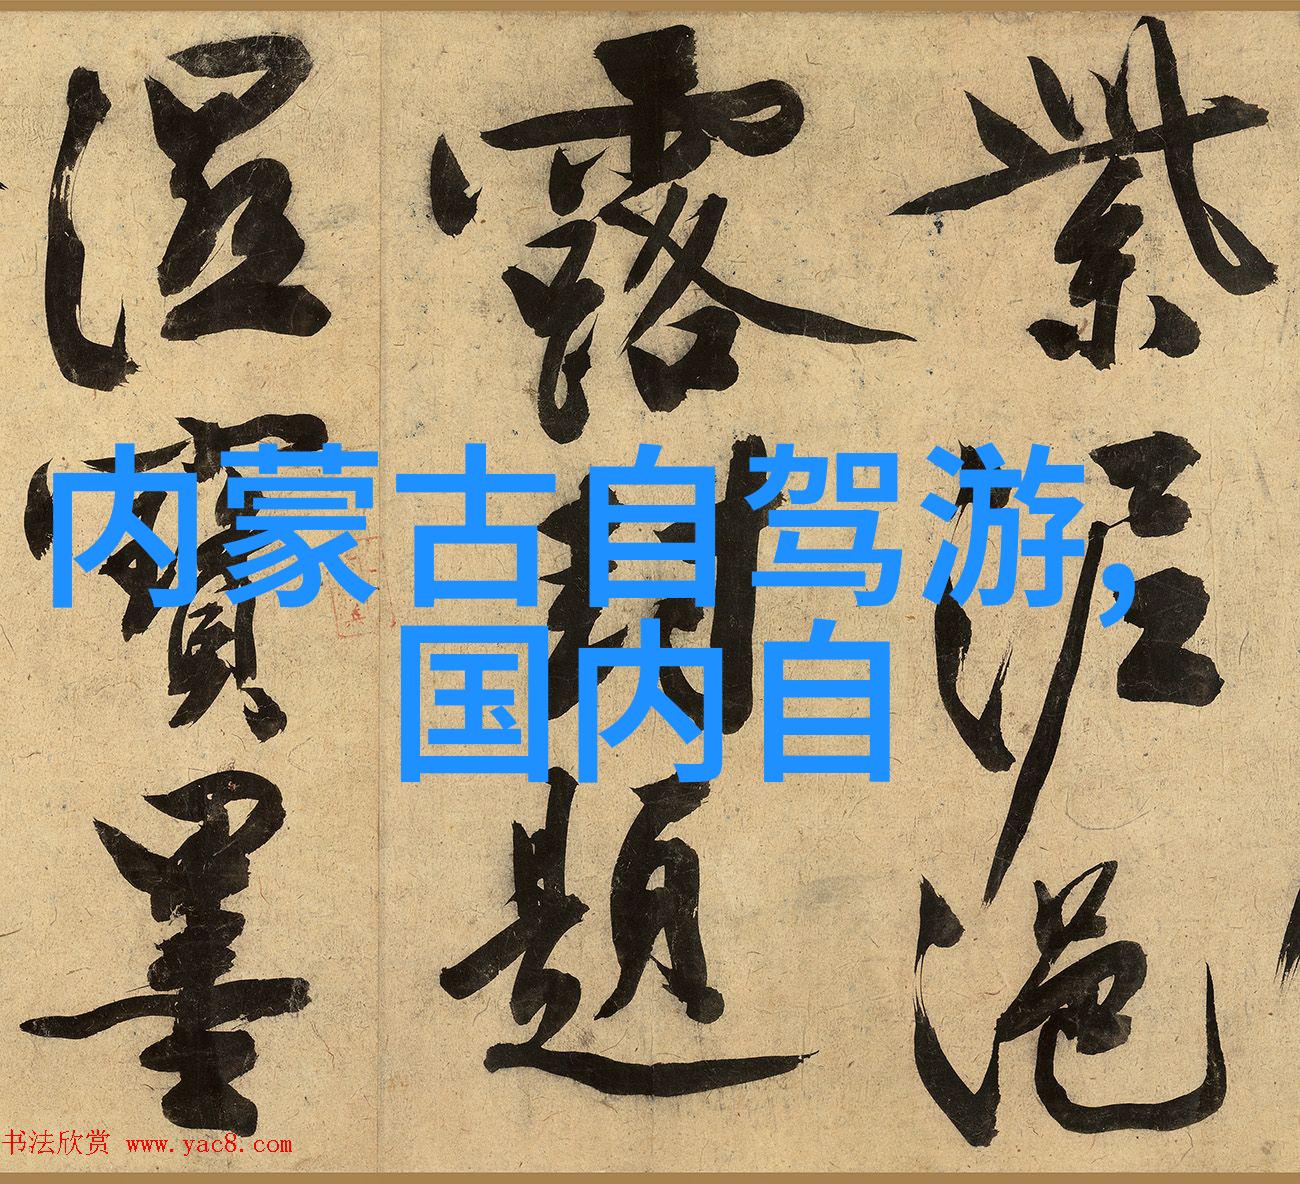 紫泥浥
露題
寶墨
内蒙古自驾游,
国内自
书法欣赏 www.yac8.com